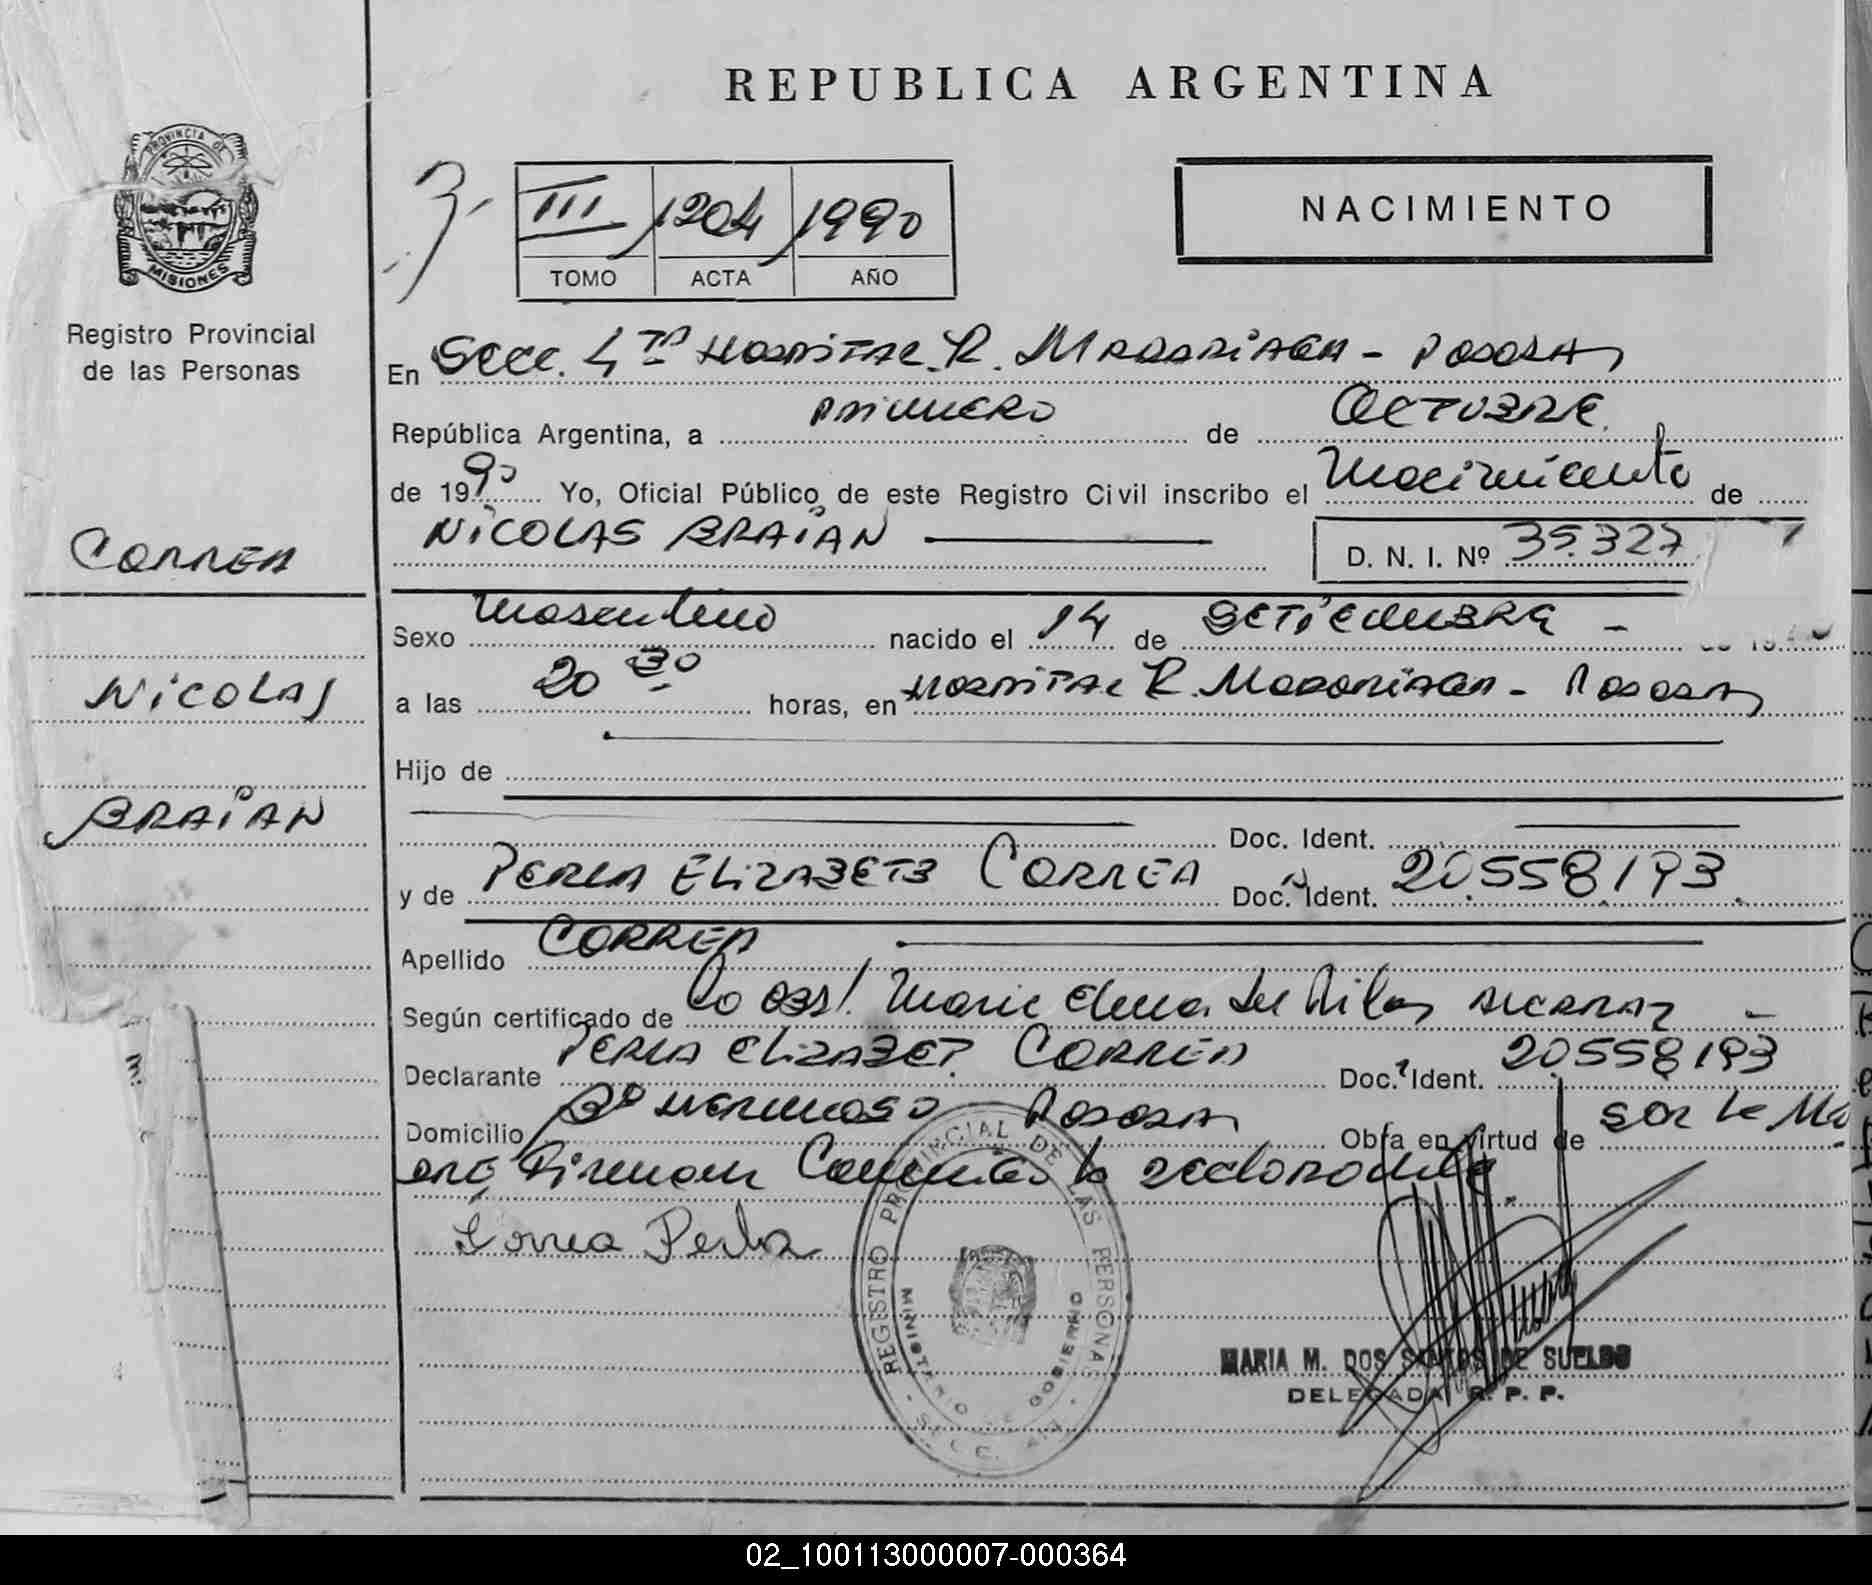 REPUBLICA ARGENTINA
PROVINCIA DE
MISIONES
Registro Provincial
de las Personas
CORREA
NICOLAS
BRAIAN
III 1204 1990
TOMO ACTA AÑO
NACIMIENTO
En Secc. 4ta HOSPITAL R. MADARIAGA - POSADAS
República Argentina, a PRIMERO de OCTUBRE
de 1990 Yo, Oficial Público de este Registro Civil inscribo el Nacimiento de
NICOLAS BRAIAN D. N. I. Nº 35.327
Sexo Masculino nacido el 14 de SETIEMBRE - de 19
a las 20 30 horas, en HOSPITAL R. MADARIAGA - POSADAS
Hijo de
Doc. Ident.
y de PERLA ELIZABETH CORREA Doc. Ident. 20.558.193
Apellido CORREA
Según certificado de La obst. Maria Elena del Pilar ALCARAZ -
Declarante PERLA ELIZABET CORREA Doc. Ident. 20558193
Domicilio Bº HERMOSO POSADAS Obra en virtud de SER la Ma
dre, Firman Conmigo la declarante.
Correa Perla
REGISTRO PROVINCIAL DE LAS PERSONAS
MINISTERIO DE GOBIERNO
MARIA M. DOS SANTOS DE SUELDO
DELEGADA R. P. P.
02_100113000007-000364